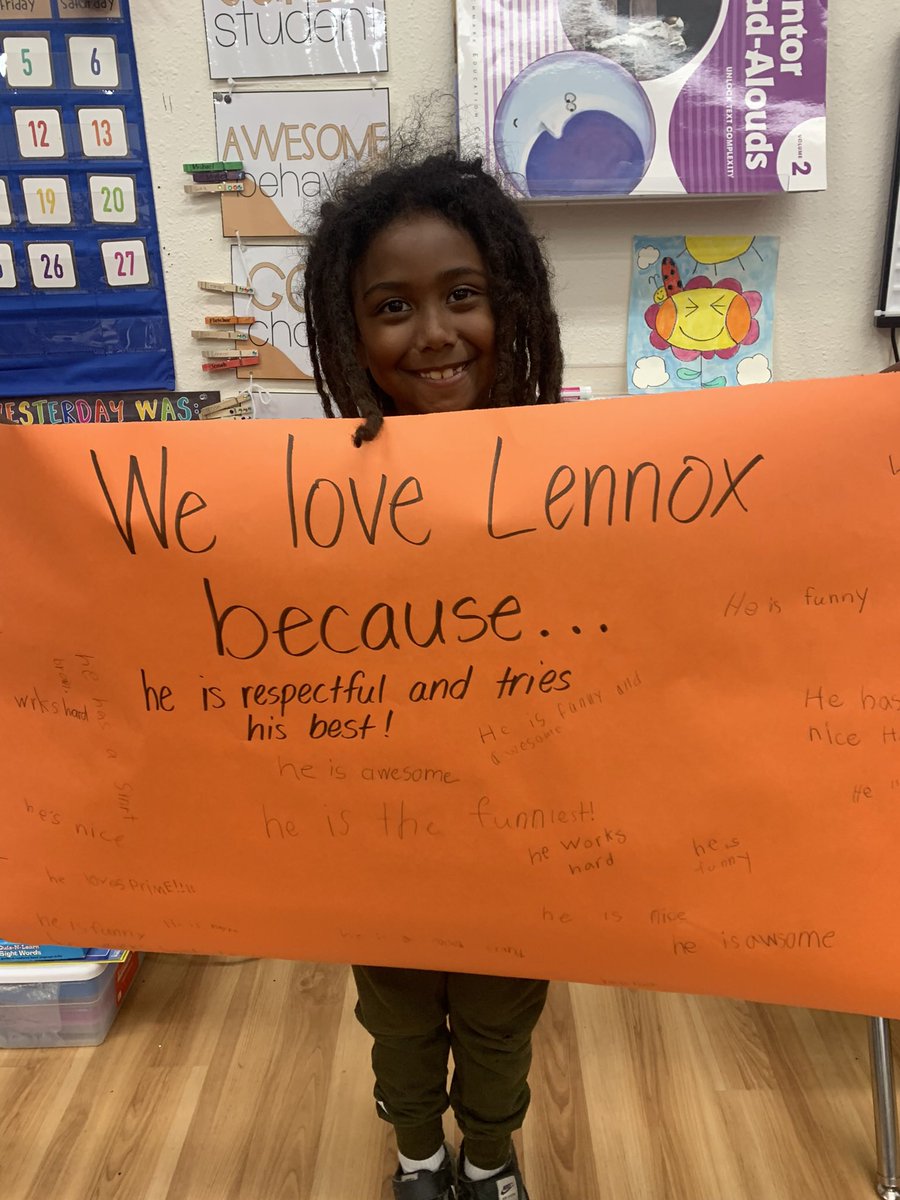 Friday
Saturday
5
6
12
13
19
20
26
27
YESTERDAY WAS:
student
AWESOME
behav
CO
cho
ntor
ad-Alouds
UNLOCK TEXT COMPLEXITY
VOLUME 2
We love Lennox
because...
he is respectful and tries
his best!
He is funny
He is funny and
awesome
he has a Smrt
brain
wrks hard
He has
nice H
he is awesome
He i
he is the funniest!
he's nice
he works
hard
he is
funny
he loves PriME!!!!
he is nice
he is funny
he is awsome
Sight Words